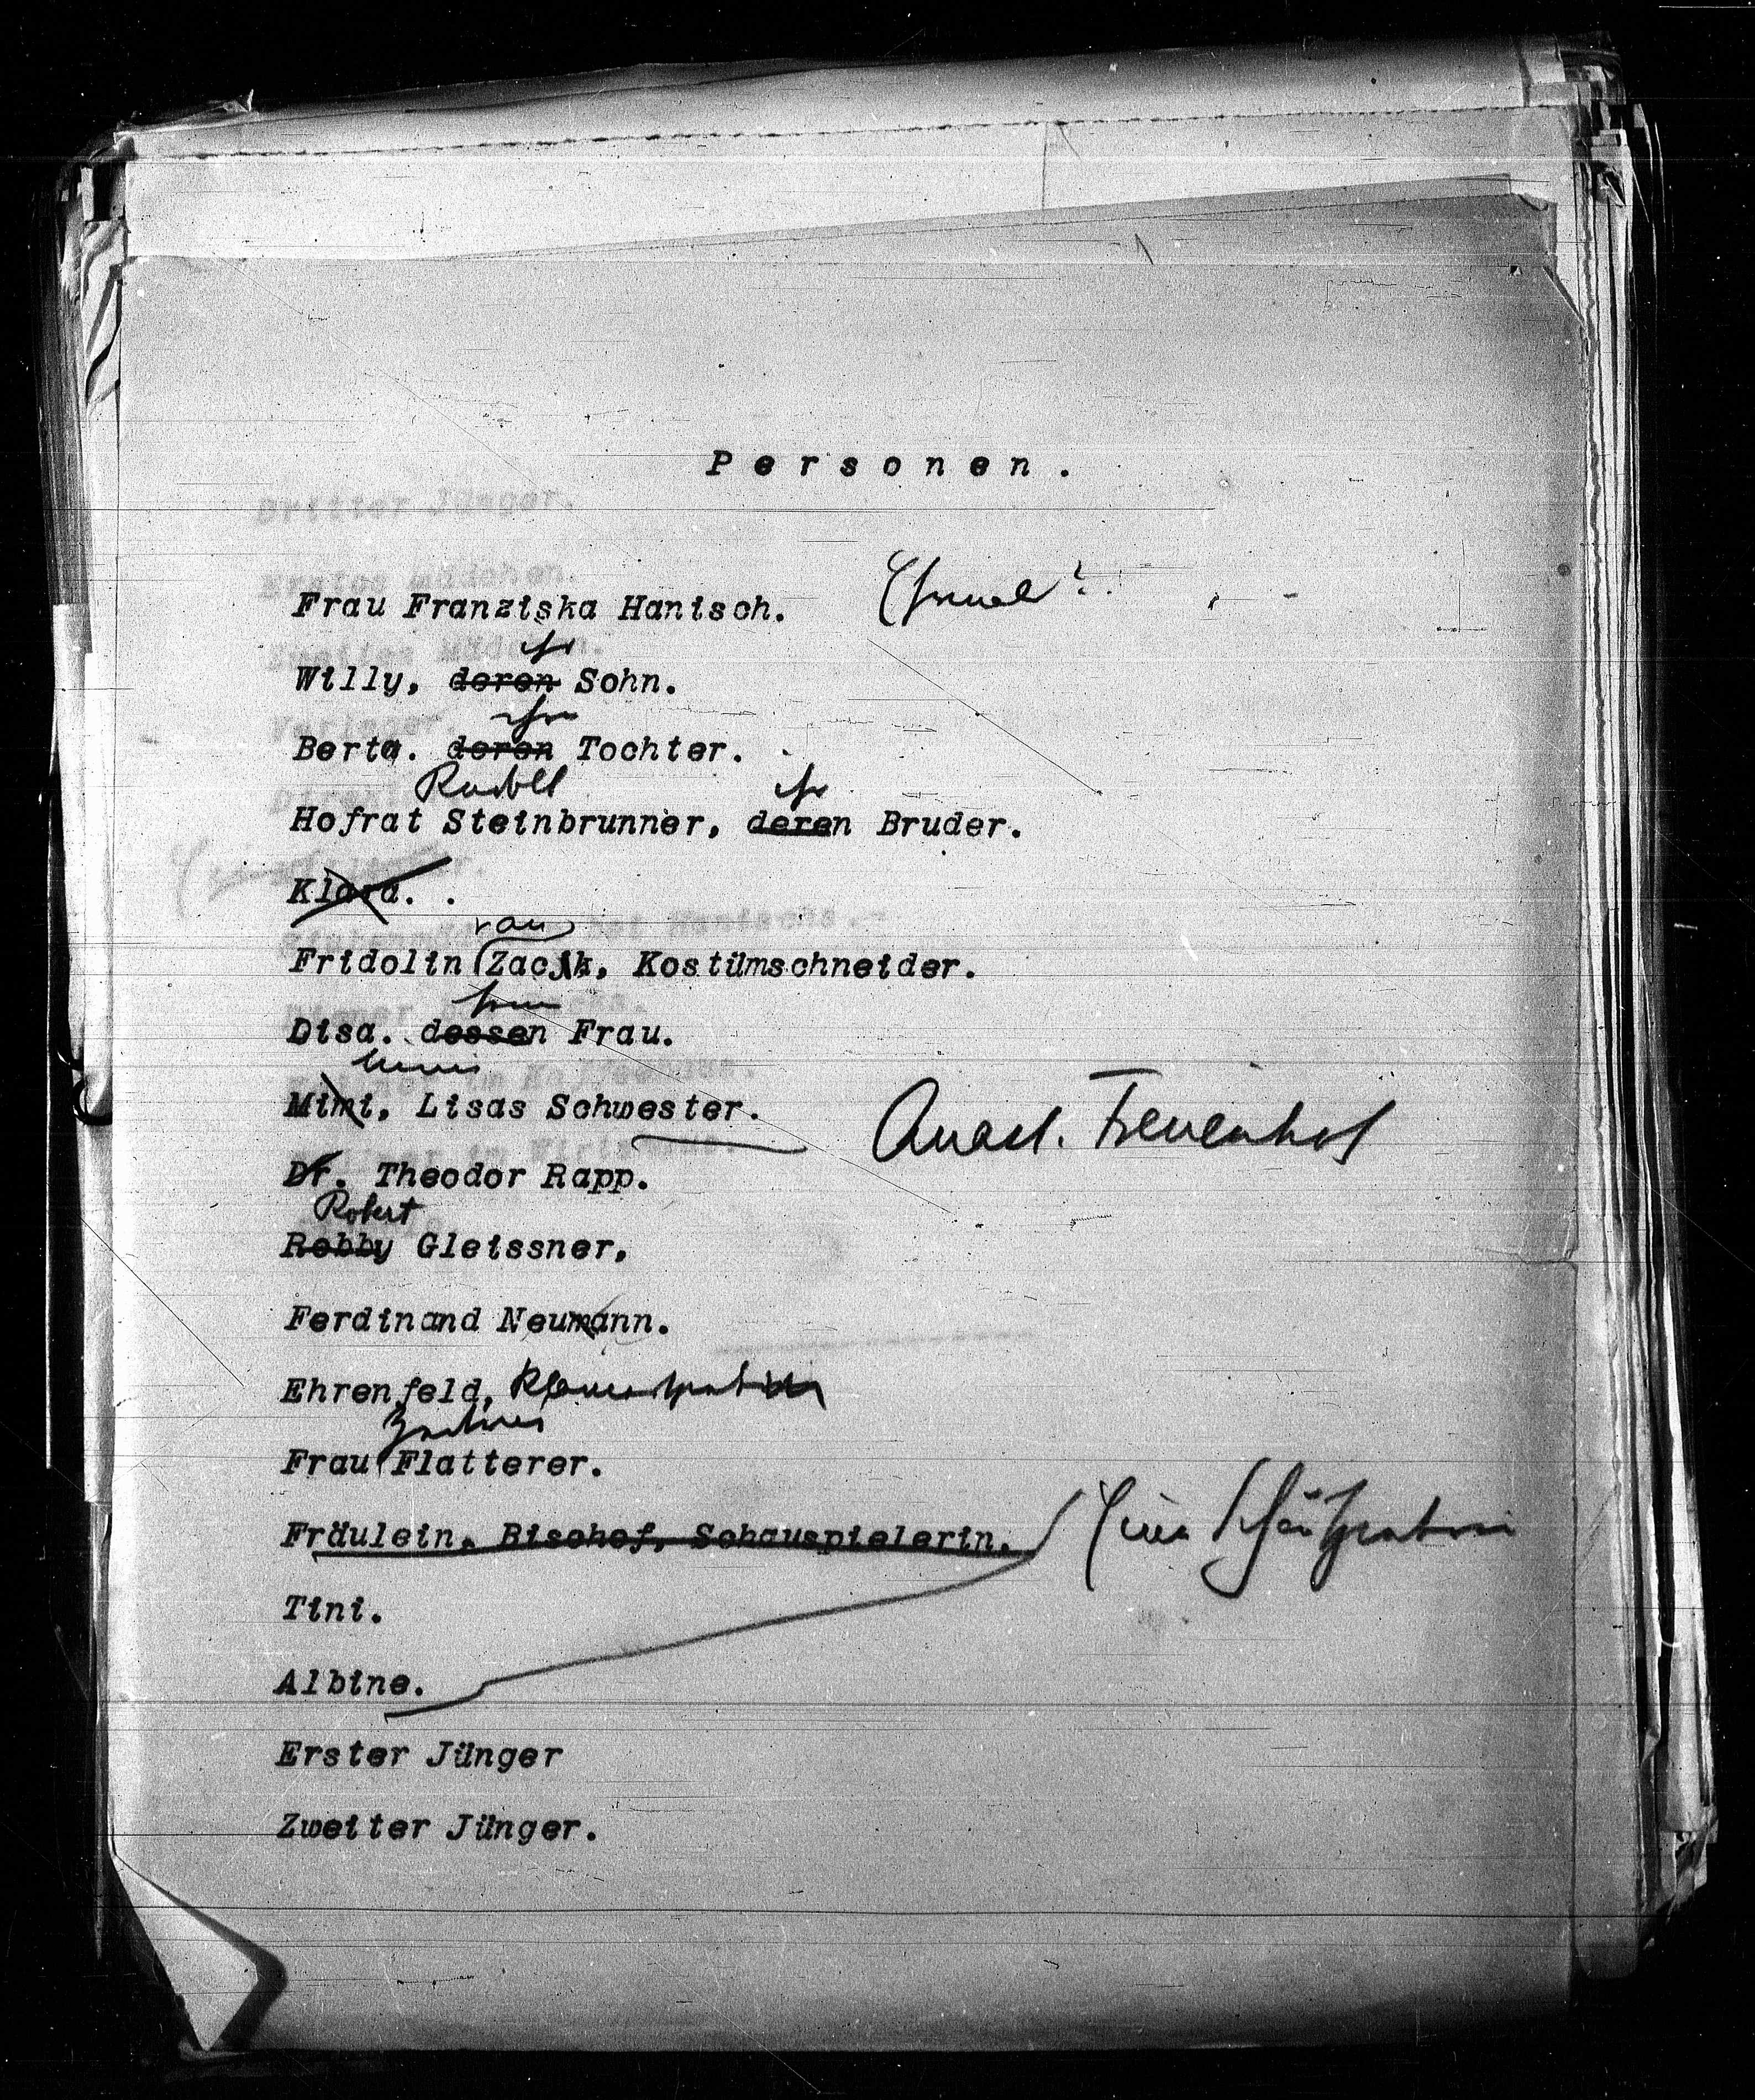 Personen.
Frau Franziska Hanisch.
ihr
Willy, deren Sohn.
ihre
Berta. deren Tochter.
Rudolf ihr
Hofrat Steinbrunner, deren Bruder.
Klara.
Fridolin Zacik, Kostümschneider.
seine
Disa. dessen Frau.
Mimi, Lisas Schwester.
Anast. Treuenhof
Dr. Theodor Rapp.
Robert
Robby Gleissner,
Ferdinand Neumann.
Ehrenfeld,
Frau Flatterer.
Fräulein. Bischof, Schauspielerin.
Tini.
Albine.
Erster Jünger
Zweiter Jünger.